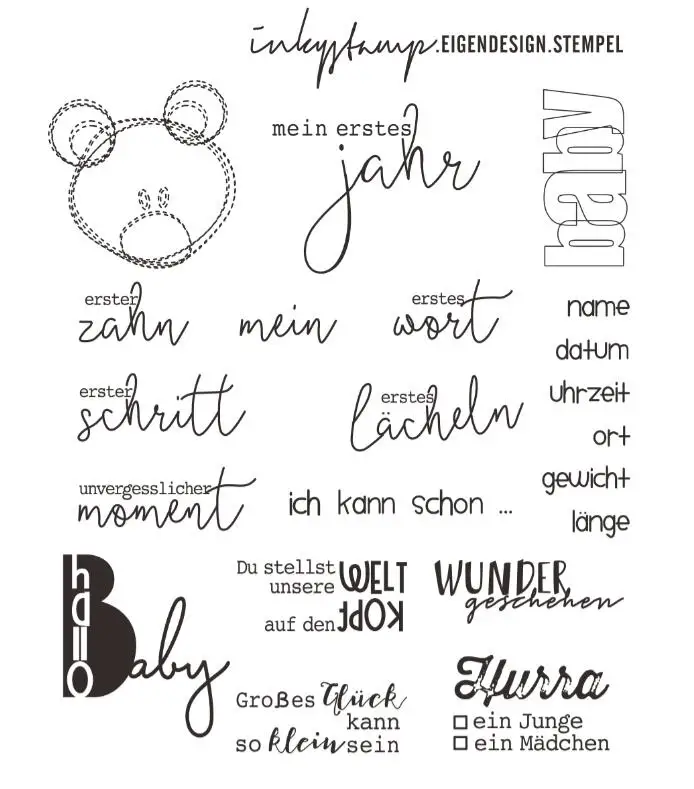 inkystamp.EIGENDESIGN.STEMPEL
mein erstes
jahr
baby
erster
zahn
mein
erstes
wort
name
datum
uhrzeit
ort
gewicht
länge
erster
schritt
erstes
lächeln
unvergesslicher
moment
ich kann schon ...
hallo
Baby
Du stellst
unsere WELT
auf den KOPF
WUNDER
geschehen
Großes Glück
kann
so klein sein
Hurra
☐ ein Junge
☐ ein Mädchen